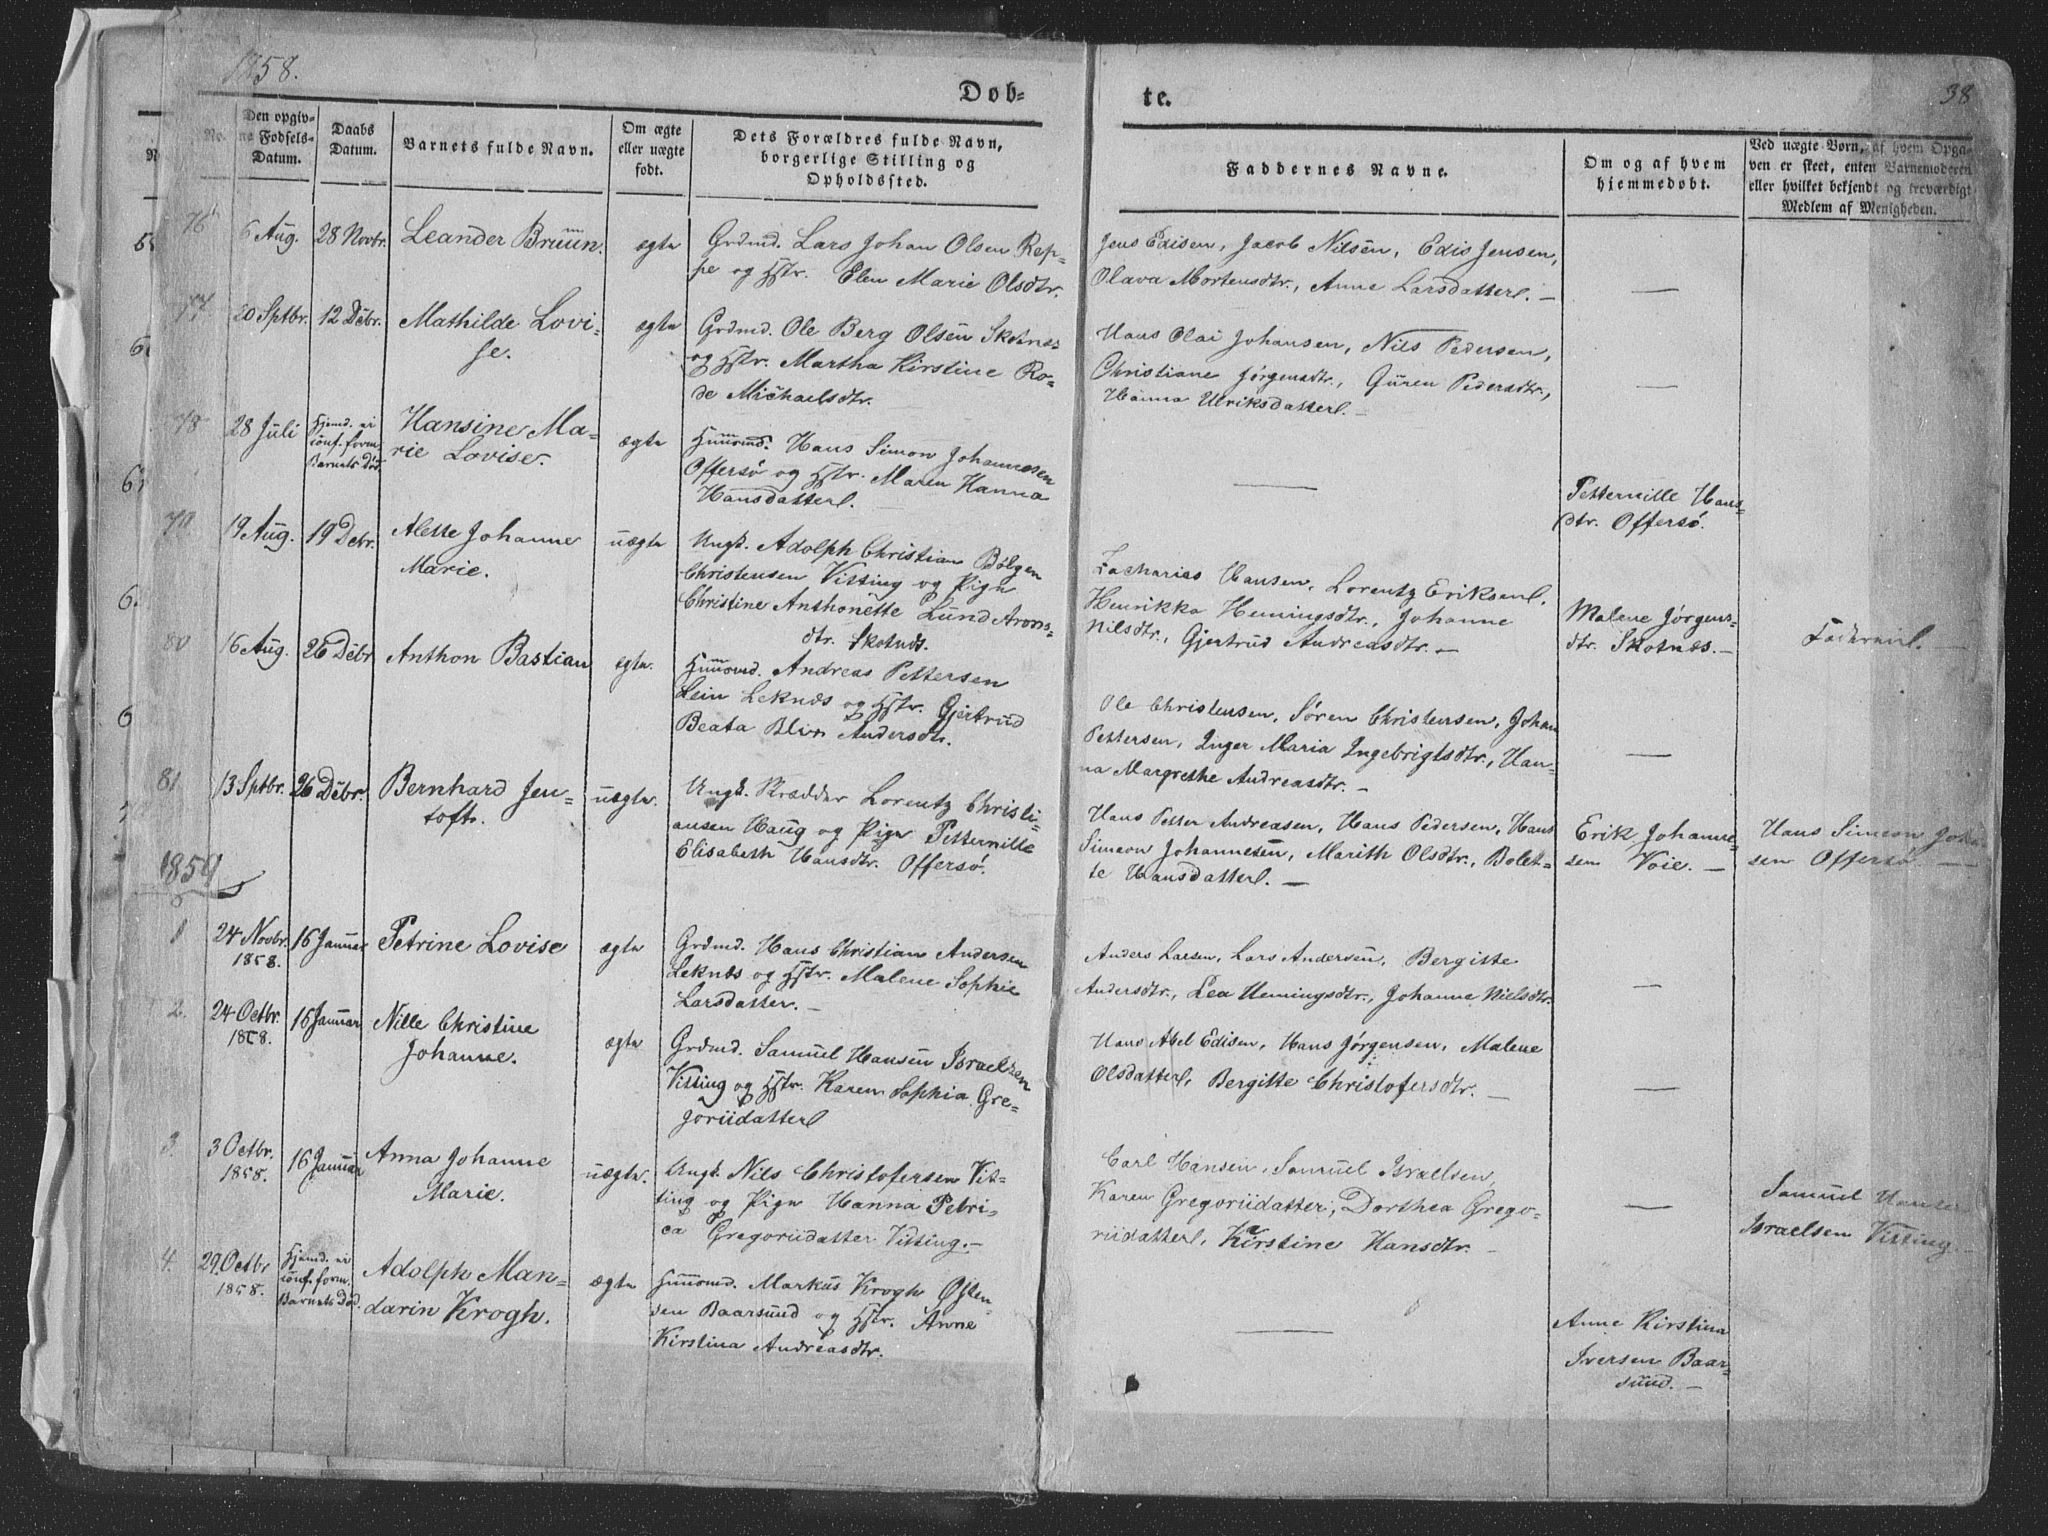 1858.
Døb-
te.
38
No.
Den opgiv-
ne Fødsels-
Datum.
Daabs
Datum.
Barnets fulde Navn.
Om ægte
eller uægte
født.
Dets Forældres fulde Navn,
borgerlige Stilling og
Opholdssted.
Faddernes Navne.
Om og af hvem
hjemmedøbt.
Ved uægte Børn, af hvem Opga-
ven er skeet, enten Barnemoderen
eller hvilket bekjendt og troværdigt
Medlem af Menigheden.
76
6 Aug.
28 Novbr.
Leander Bruun.
ægte
Grdmd. Lars Johan Olsen Rep-
pe og Hstr. Elen Marie Olsdtr.
Jens Edisen, Jacob Nilsen, Edis Jensen,
Olava Mortensdtr., Anne Larsdatter. —
—
77
20 Sptbr.
12 Debr.
Mathilde Lovi-
se.
ægte
Grdmd. Ole Berg Olsen Skotnæs
og Hstr. Martha Kirstine Ro-
de Michaelsdtr.
Hans Olai Johansen, Nils Pedersen,
Christiane Jørgensdtr., Guren Pedersdtr.,
Hanna Ulriksdatter. —
—
78
28 Juli
Hjemd. ei
conf. form.
Barnets Død.
Hansine Ma-
rie Lovise.
ægte
Huusmd. Hans Simon Johannesen
Offersø og Hstr. Maren Hanna
Hansdatter. —
—
Petternille Hans-
dtr. Offersø.
79
19 Aug.
19 Debr.
Alette Johanne
Marie.
uægte
Ungk. Adolph Christian Bølgen
Christensen Vitting og Pige
Christine Anthonette Lund Arons-
dtr. Skotnæs.
Zacharias Hansen, Lorentz Eriksen,
Henrikka Hemingsdtr., Johanne
Nilsdtr., Gjertrud Andreasdtr. —
Malene Jørgens-
dtr. Skotnæs. —
Faderen. —
80
16 Aug.
26 Debr
Anthon Bastian
ægte.
Huusmd. Andreas Pettersen
Lein Leknæs og Hstr. Gjertrud
Beata Blix Andersdtr.
Ole Christensen, Søren Christensen, Johan
Pettersen, Inger Maria Ingebrigtsdtr., Han-
na Margrethe Andreasdtr. —
—
81
13 Sptbr.
26 Debr.
Bernhard Jen-
toft.
uægte.
Ungk. Skrædder Lorentz Christi-
ansen Haug og Pige Petternille
Elisabeth Hansdtr. Offersø.
Hans Petter Andreasen, Hans Pedersen, Hans
Simeon Johannesen, Marith Olsdtr., Bolet-
te Hansdatter. —
Erik Johanne-
sen Voie. —
Hans Simeon Johan-
sen Offersø. —
1859
1
24 Novbr.
1858.
16 Januar
Petrine Lovise
ægte
Grdmd. Hans Christian Andersen
Leknæs og Hstr. Malene Sophie
Larsdatter. —
Anders Larsen, Lars Andersen, Bergitte
Andersdtr., Lea Hemingsdtr., Johanne Nielsdtr.
—
2.
24 Octbr.
1858.
16 Januar
Nille Christine
Johanne.
ægte
Grdmd. Samuel Hansen Israelsen
Vitting og Hstr. Karen Sophia Gre-
goriidatter
Hans Abel Edisen, Hans Jørgensen, Malene
Olsdatter, Bergitte Christofersdtr. —
—
3.
3 Octbr.
1858.
16 Januar
Anna Johanne
Marie.
uægte.
Ungk. Nils Christofersen Vit-
ting og Pige Hanna Petri-
ca Gregoriidatter Vitting. —
Carl Hansen, Samuel Israelsen,
Karen Gregoriidatter, Dorthea Grego-
riidatter, Kirstine Hansdtr. —
—
Samuel Hansen
Israelsen Vitting. —
4.
29 Octbr
1858.
Hjemd. ei
conf. form.
Barnets Død.
Adolph Man-
darin Krogh.
ægte
Huusmd. Markus Krogh Østen-
sen Baarsund og Hstr. Anne
Kirstina Andreasdtr.
—
Anne Kirstina
Iversen Baar-
sund. —